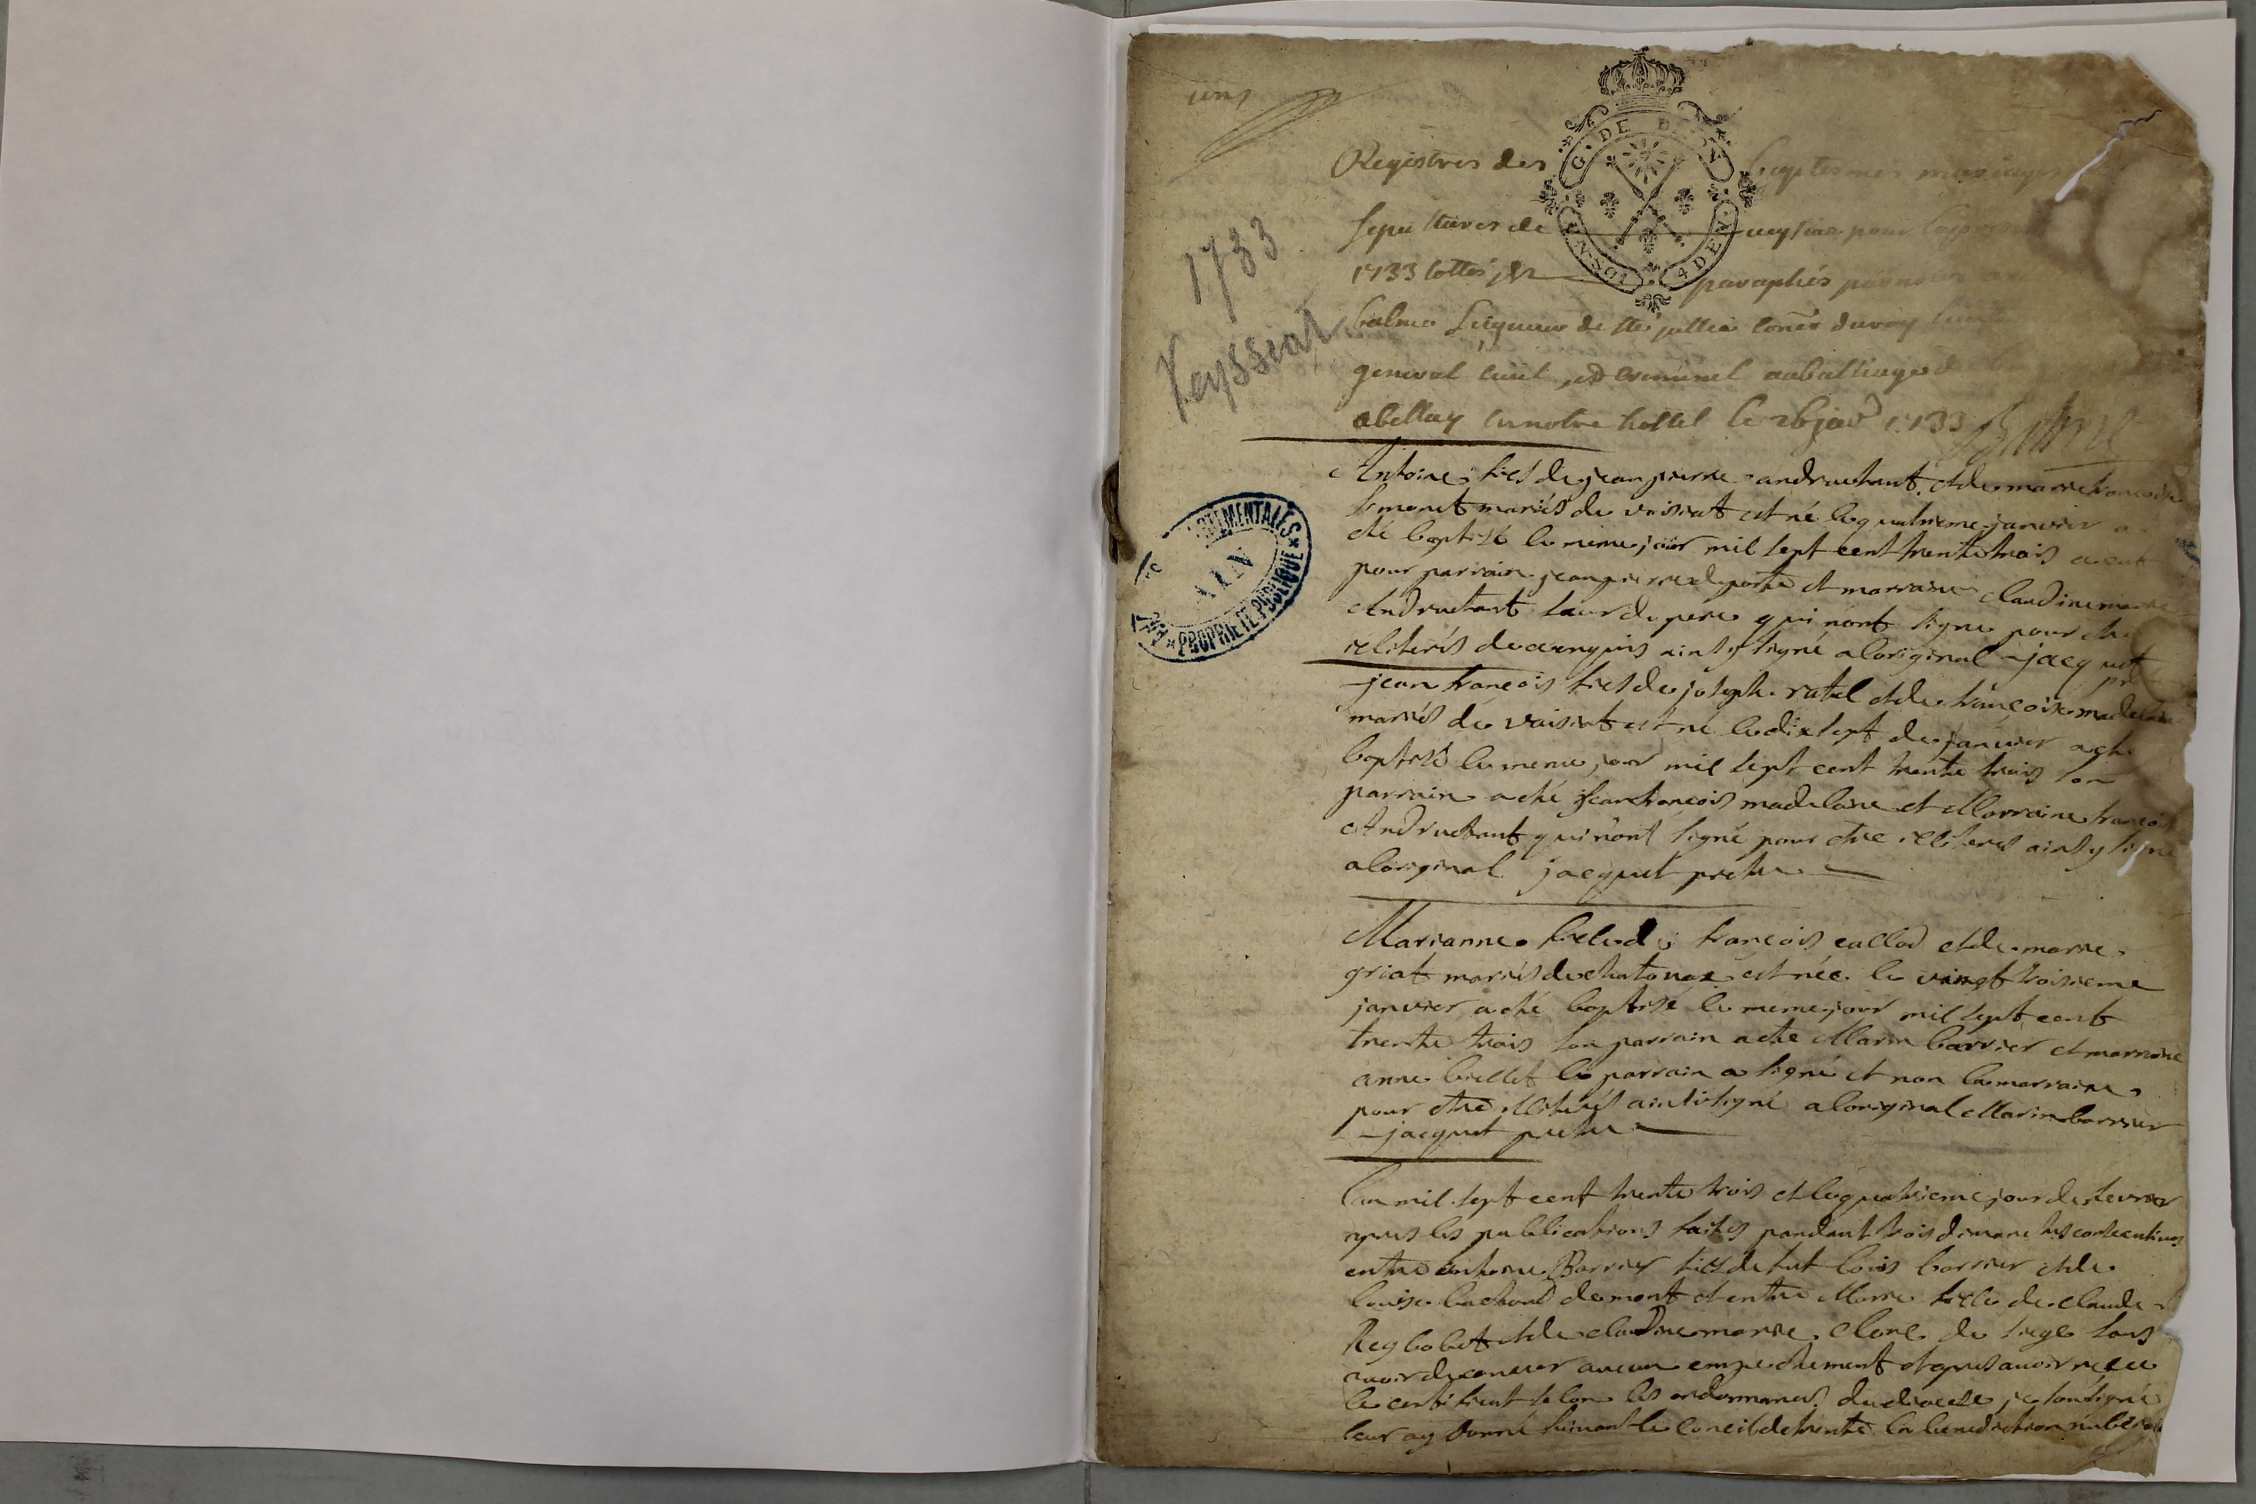 uns
G. DE D
Registres des baptesmes mariages
sepultures de veyssiac pour l'année
1733 cottés & paraphés par nous
balme seigneur de ste jullie coner du roy lieut
general civil et criminel au balliage de
a bellay en notre hostel le 26 janr 1733
4 DEN.
UN SOL
1733
Veyssiat
DEPARTEMENTALES
AIN
PROPRIETE PUBLIQUE
Antoine fils de jean pierre andruetant et de marie francoise
monet mariés de vaisiat est né le quatrieme janvier a
été baptisé le meme jour mil sept cent trente trois a eut
pour parrain jean pierre deporte et marraine claudine marie
Andruetant sœur du pere qui n'ont signé pour etre
illiterés de ce enquis ainsy signé a loriginal jacquet
ptr
jean francois fils de joseph ratel et de francoise madelaine
mariés de vaisiat est né le dix sept de janvier a eté
baptisé le meme jour mil sept cent trente trois son
parrain a eté jean francois madelaine et Marraine francoise
Andruetant qui n'ont signé pour etre illiteres ainsy signé
a loriginal jacquet pretre
Marianne fille de francois callod et de marie
griat mariés de chatonax est née le vingt troisieme
janvier a eté baptisé le meme jour mil sept cent
trente trois son parrain a eté Marin barrier et marraine
anne billet le parrain a signé et non la marraine
pour etre illiterés ainsi signé a loriginal Marin barrier
jacquet pretre
L'an mil sept cent trente trois et le quatrieme jour de fevrier
apres les publications faites pendant trois dimanches consecutives
entre antoine Barrier fils de fut louis barrier et de
louise bachod de mont et entre Marie fille de claude
Rey bobet et de claudine marie clerc de siege sans
avoir decouver aucun empechement et apres avoir receu
le certificat selon les ordonnances du diocese je soussigné
leur ay donné suivant le concil de trente la benediction nubtiale